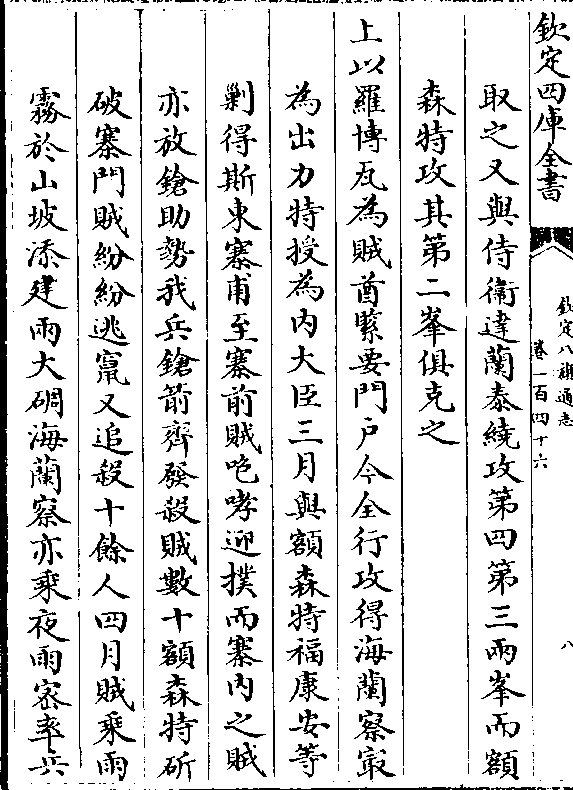 欽定四庫全書
欽定八旗通志
卷一百四十六
八
取之又與侍衞達蘭泰繞攻第四第三兩峯而額
森特攻其第二峯俱克之
上以羅博瓦為賊酋緊要門户今全行攻得海蘭察最
為出力特授為内大臣三月與額森特福康安等
剿得斯東寨甫至寨前賊咆哮迎撲而寨内之賊
亦放鎗助勢我兵鎗箭齊發殺賊數十額森特斫
破寨門賊紛紛逃竄又追殺十餘人四月賊乘雨
霧於山坡添建兩大碉海蘭察亦乘夜雨密率兵